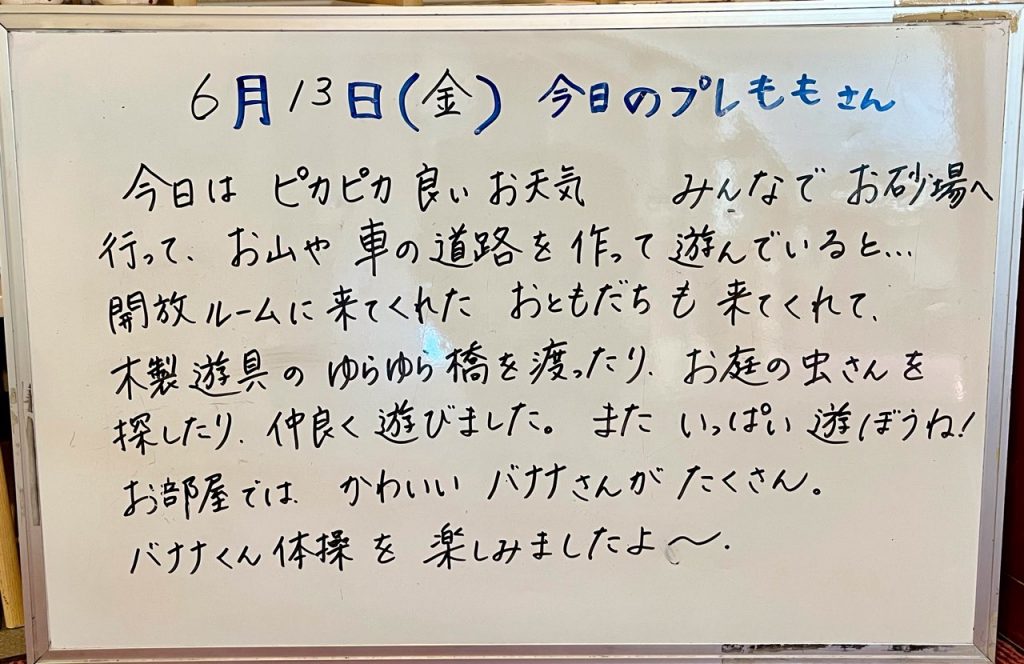 6月13日(金) 今日のプレももさん
今日は ピカピカ良いお天気 みんなで お砂場へ
行って、お山や 車の道路を 作って 遊んでいると…
開放ルームに来てくれた おともだちも 来てくれて、
木製遊具の ゆらゆら橋を渡ったり、お庭の虫さんを
探したり、仲良く 遊びました。また いっぱい 遊ぼうね!
お部屋では、かわいい バナナさんが たくさん。
バナナくん体操 を 楽しみましたよ〜.